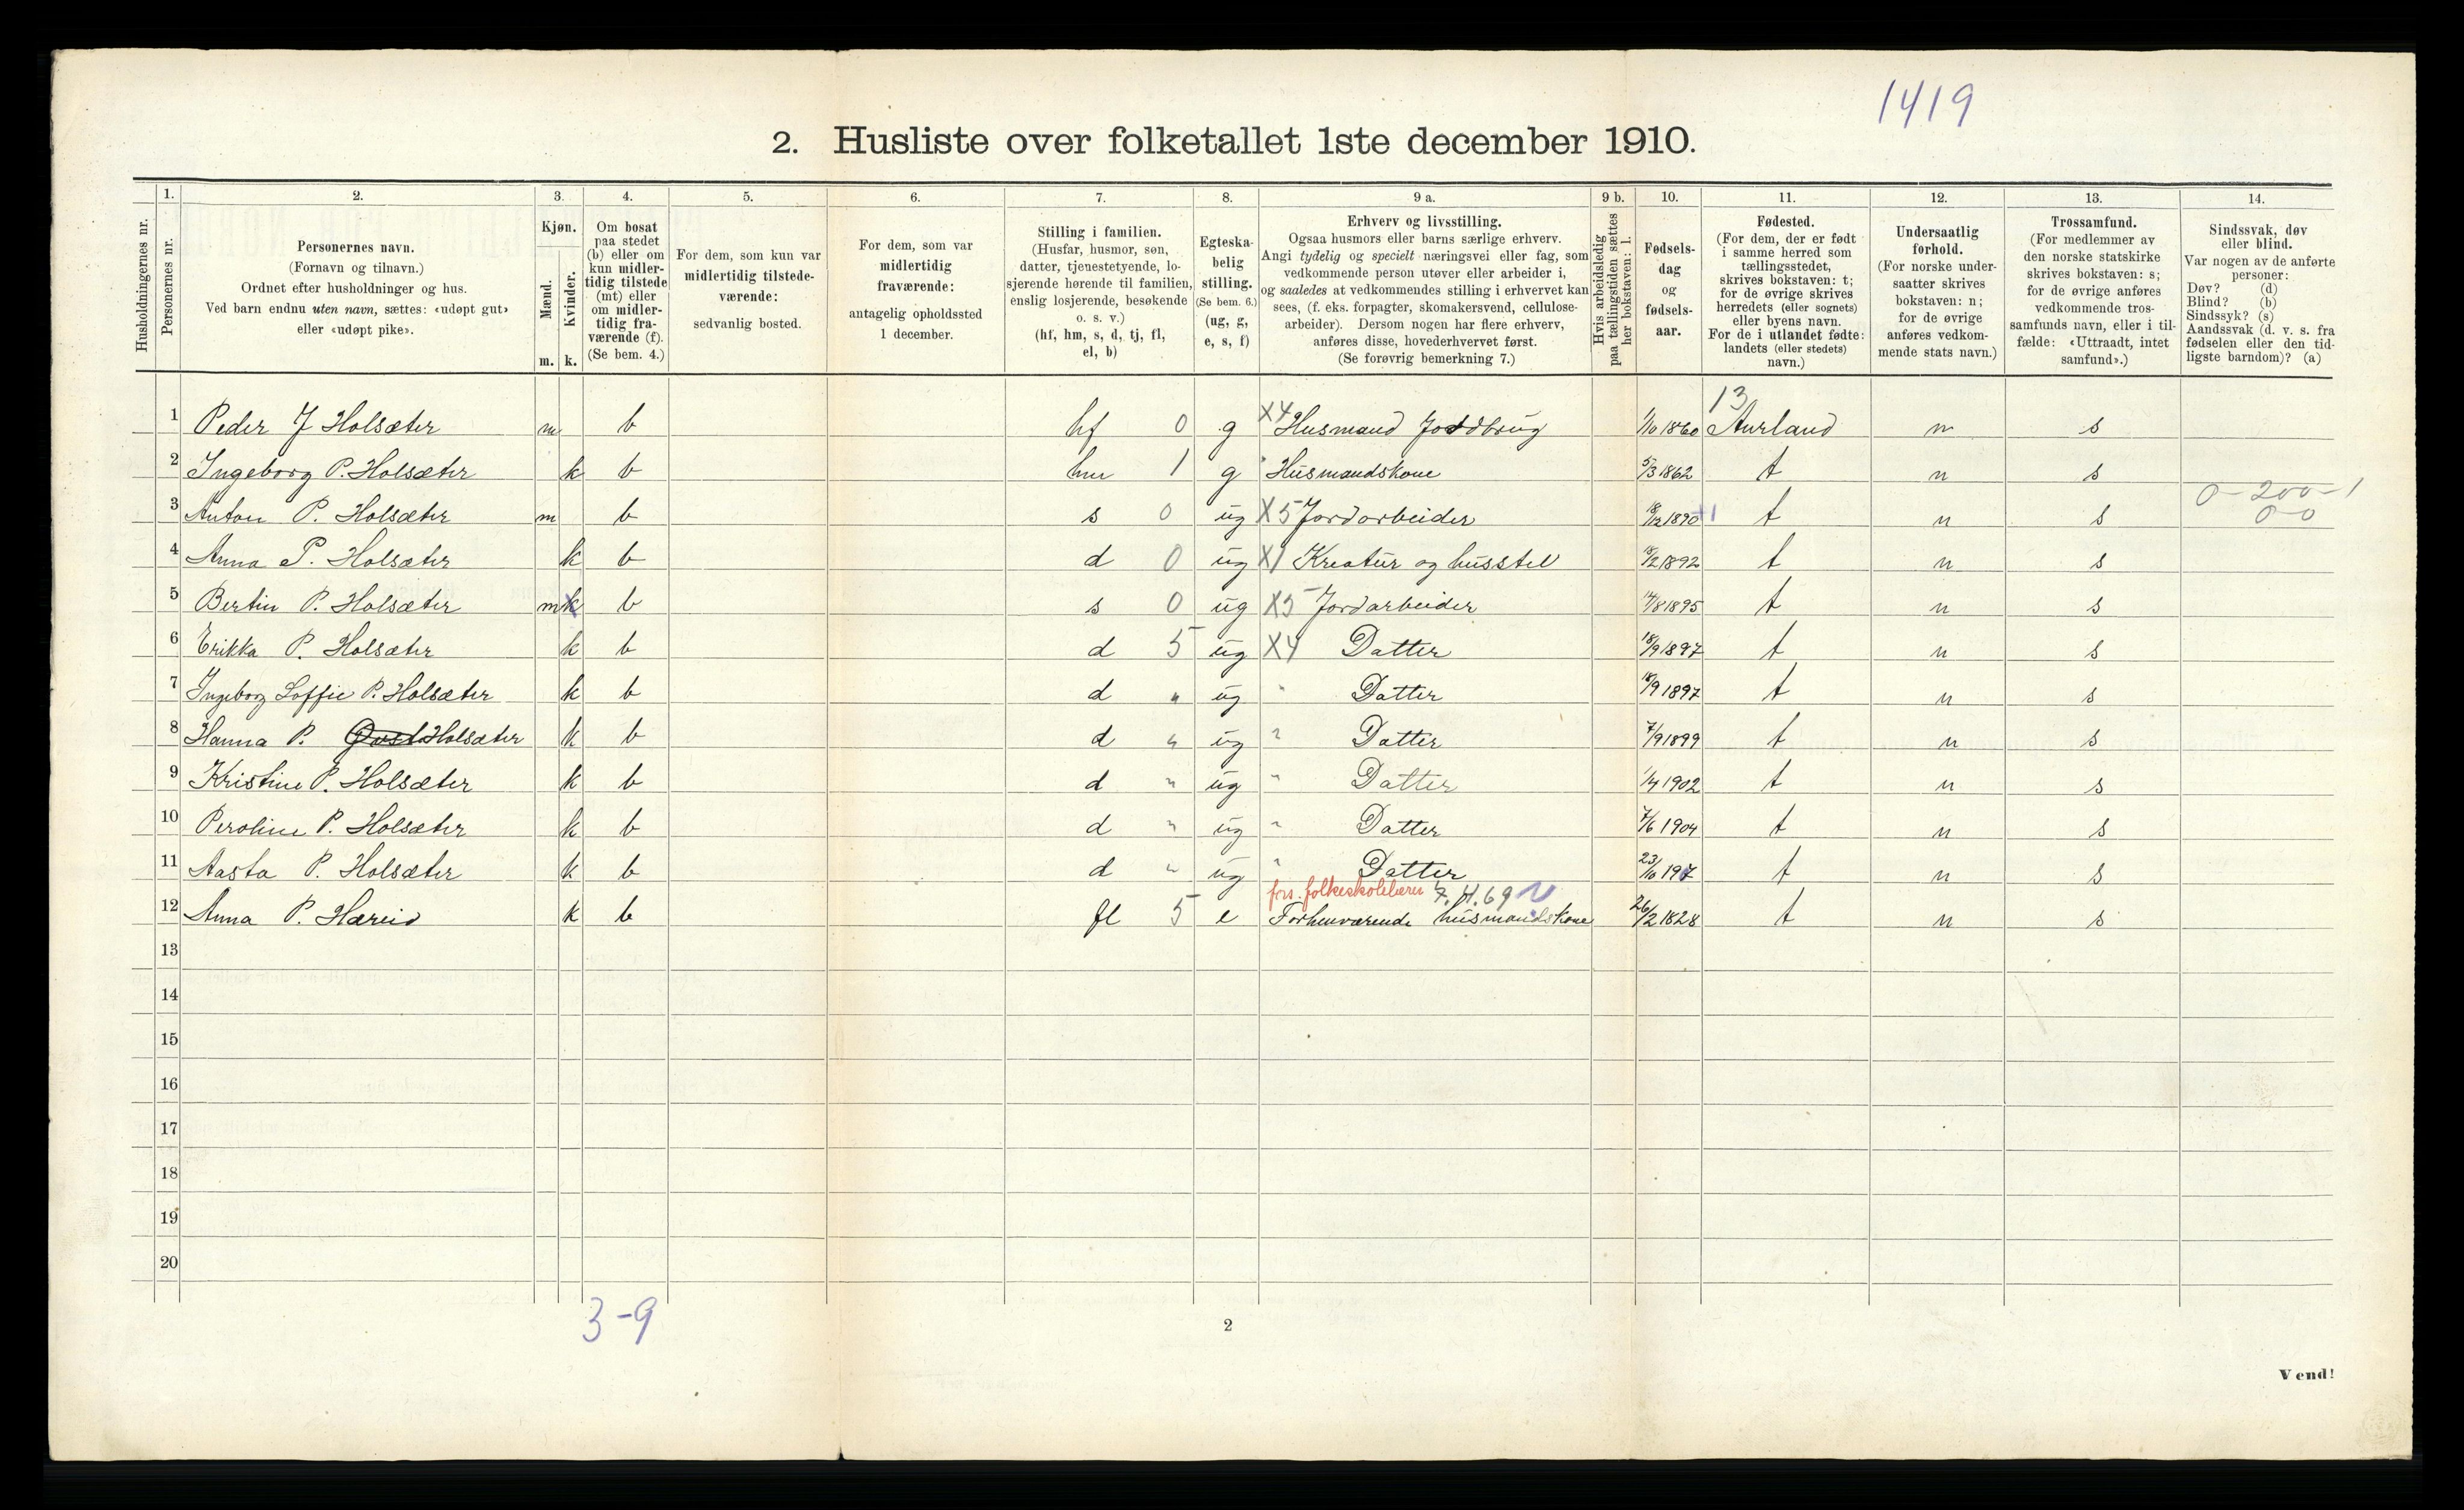 1419
2. Husliste over folketallet 1ste december 1910.
Husholdningernes nr.
1. Personernes nr.
2. Personernes navn.
(Fornavn og tilnavn.)
Ordnet efter husholdninger og hus.
Ved barn endnu uten navn, sættes: «udøpt gut»
eller «udøpt pike».
3. Kjøn.
Mænd. m.
Kvinder. k.
4. Om bosat
paa stedet
(b) eller om
kun midler-
tidig tilstede
(mt) eller
om midler-
tidig fra-
værende (f).
(Se bem. 4.)
5. For dem, som kun var
midlertidig tilstede-
værende:
sedvanlig bosted.
6. For dem, som var
midlertidig
fraværende:
antagelig opholdssted
1 december.
7. Stilling i familien.
(Husfar, husmor, søn,
datter, tjenestetyende, lo-
sjerende hørende til familien,
enslig losjerende, besøkende
o. s. v.)
(hf, hm, s, d, tj, fl,
el, b)
8. Egteska-
belig
stilling.
(Se bem. 6.)
(ug, g,
e, s, f)
9 a. Erhverv og livsstilling.
Ogsaa husmors eller barns særlige erhverv.
Angi tydelig og specielt næringsvei eller fag, som
vedkommende person utøver eller arbeider i,
og saaledes at vedkommendes stilling i erhvervet kan
sees, (f. eks. forpagter, skomakersvend, cellulose-
arbeider). Dersom nogen har flere erhverv,
anføres disse, hovederhvervet først.
(Se forøvrig bemerkning 7.)
9 b. Hvis arbeidsledig
paa tællingstiden sættes
her bokstaven: l.
10. Fødsels-
dag
og
fødsels-
aar.
11. Fødested.
(For dem, der er født
i samme herred som
tællingsstedet,
skrives bokstaven: t;
for de øvrige skrives
herredets (eller sognets)
eller byens navn.
For de i utlandet fødte:
landets (eller stedets)
navn.)
12. Undersaatlig
forhold.
(For norske under-
saatter skrives
bokstaven: n;
for de øvrige
anføres vedkom-
mende stats navn.)
13. Trossamfund.
(For medlemmer av
den norske statskirke
skrives bokstaven: s;
for de øvrige anføres
vedkommende tros-
samfunds navn, eller i til-
fælde: «Uttraadt, intet
samfund».)
14. Sindssvak, døv
eller blind.
Var nogen av de anførte
personer:
Døv? (d)
Blind? (b)
Sindssyk? (s)
Aandssvak (d. v. s. fra
fødselen eller den tid-
ligste barndom)? (a)
13
1 Peder J Holsæter m b hf 0 g X4 Husmand Jordbrug 1/10 1860 Aurland n s
2 Ingeborg P. Holsæter k b hm 1 g Husmandskone 5/3 1862 t n s
0-200-1
3 Anton P. Holsæter m b s 0 ug X5 Jordarbeider 18/12 1890 +1 t n s 0-0
4 Anna P. Holsæter k b d 0 ug X1 Kreatur og husstel 18/2 1892 t n s
5 Bertin P. Holsæter m k b s 0 ug X5 Jordarbeider 14/8 1895 t n s
6 Erikka P. Holsæter k b d 5 ug X4 Datter 18/9 1897 t n s
7 Ingeborg Soffie P. Holsæter k b d " ug " Datter 18/9 1897 t n s
8 Hanna P. Holsæter k b d " ug " Datter 7/9 1899 t n s
9 Kristine P. Holsæter k b d " ug " Datter 1/4 1902 t n s
10 Peroline P. Holsæter k b d " ug " Datter 7/6 1904 t n s
11 Aasta P. Holsæter k b d " ug " Datter 23/10 197 t n s
fors. folkeskolelærer 7.H.69
12 Anna P. Hæreid k b fl 5 e Forhenværende husmandskone 26/2 1828 t n s
13
14
15
16
17
18
19
20
3-9
2
Vend!